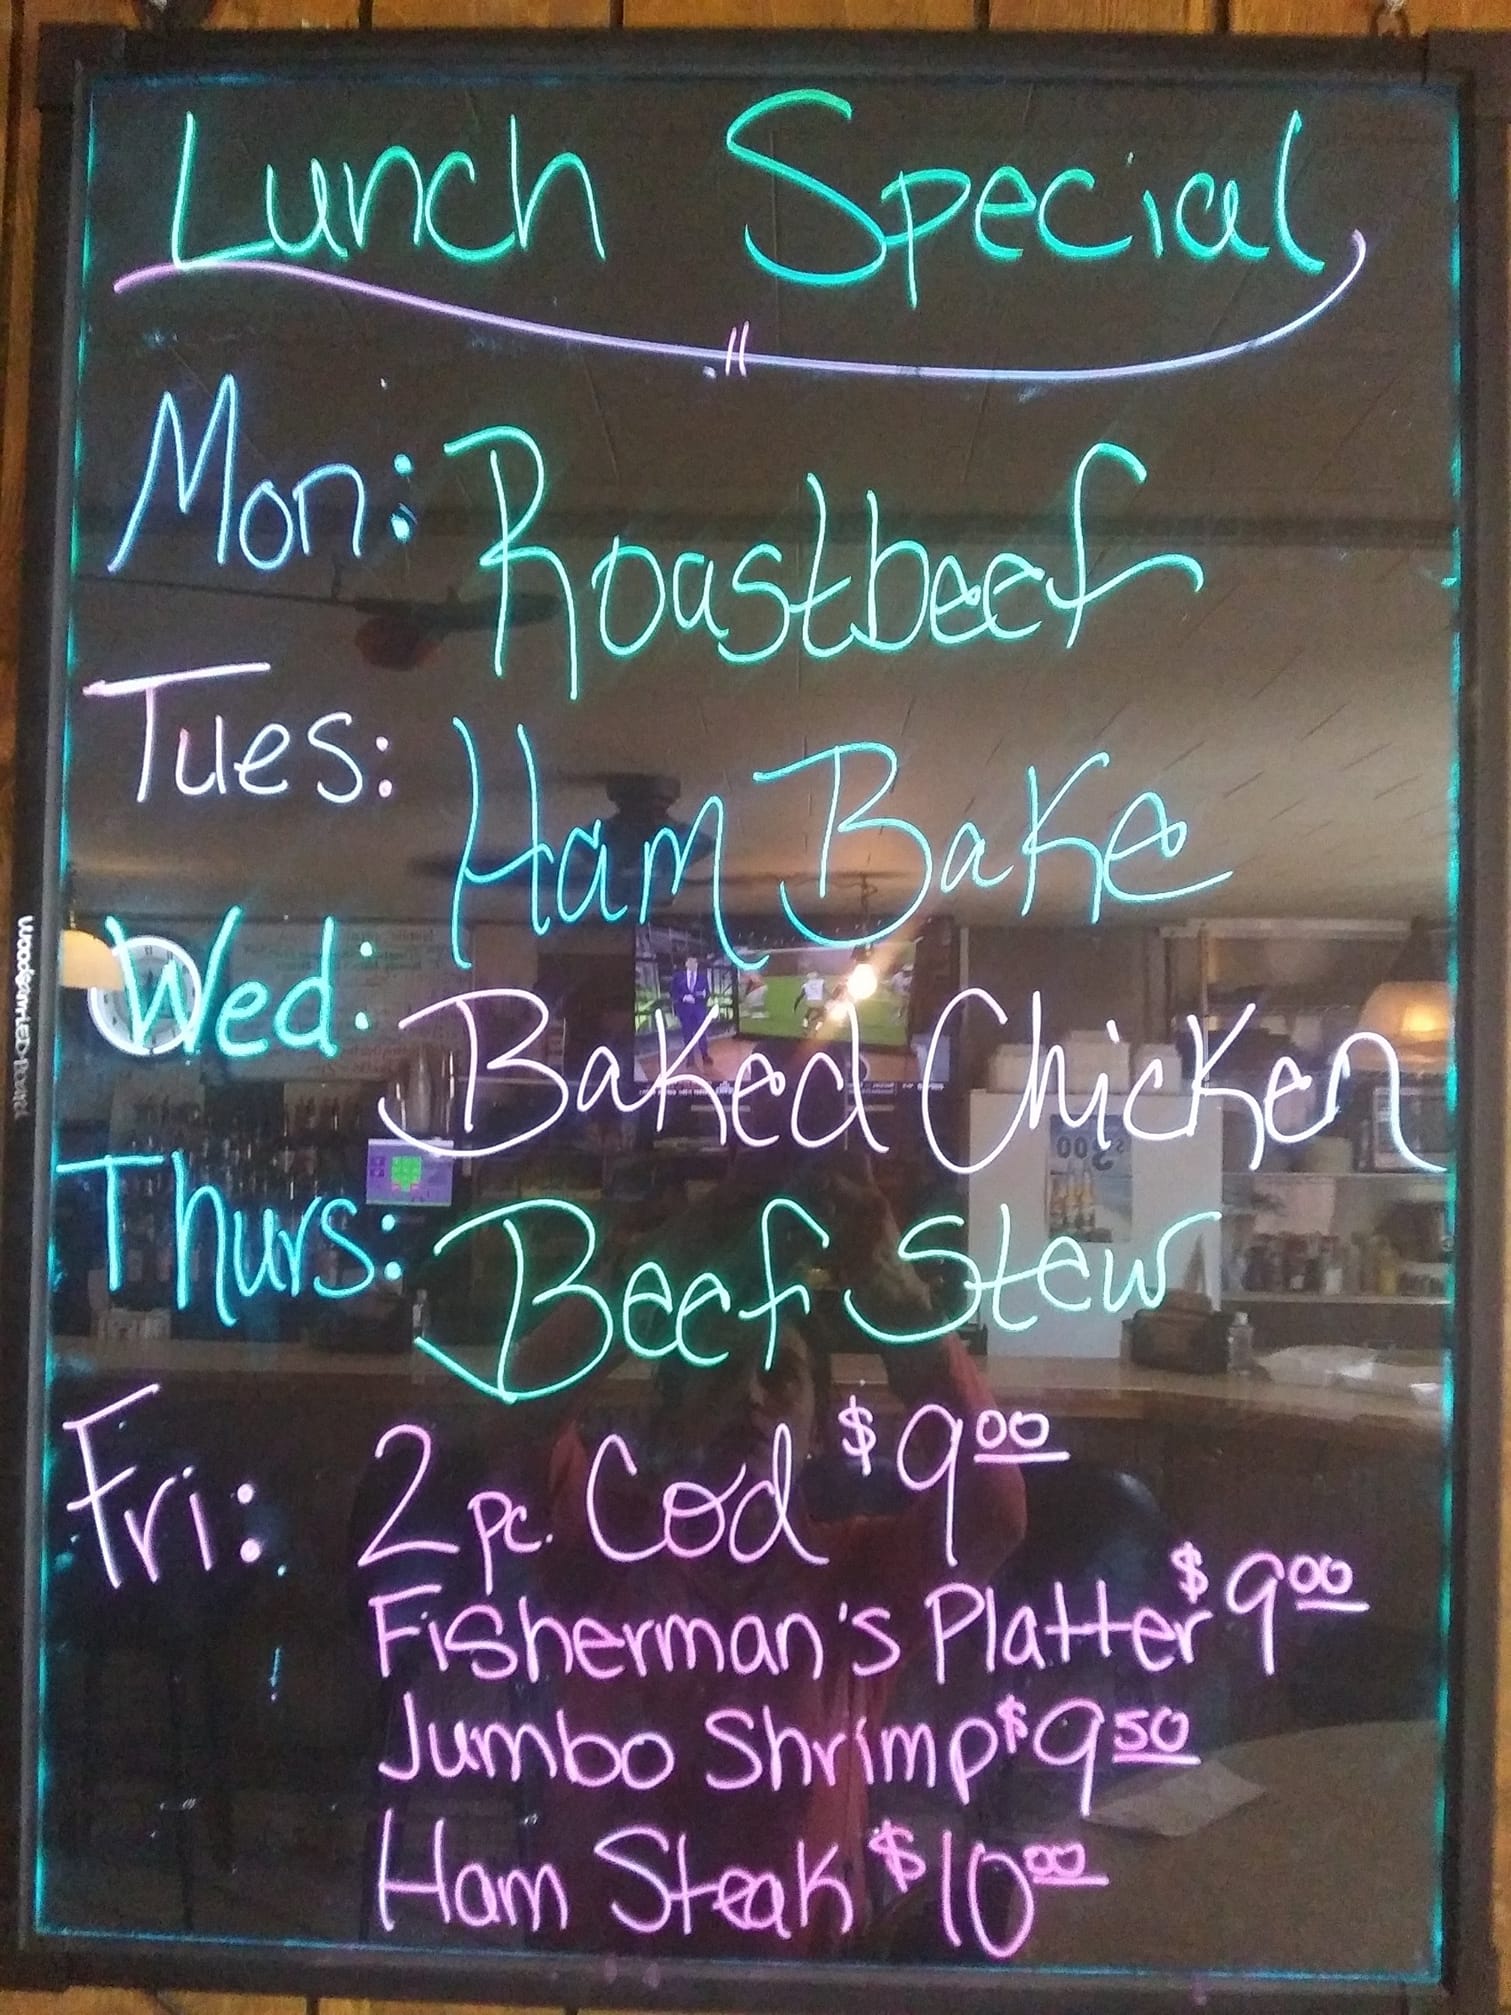 Lunch Special
Mon: Roastbeef
Tues: Ham Bake
Wed: Baked Chicken
Thurs: Beef Stew
Fri: 2 pc. Cod $9.00
Fisherman's Platter $9.00
Jumbo Shrimp $9.50
Ham Steak $10.00